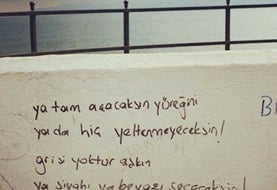 ya tam açacaksın yüreğini
ya da hiç yeltenmeyeceksin!
grisi yoktur aşkın
ya siyahı ya beyazı seçeceksin!
B